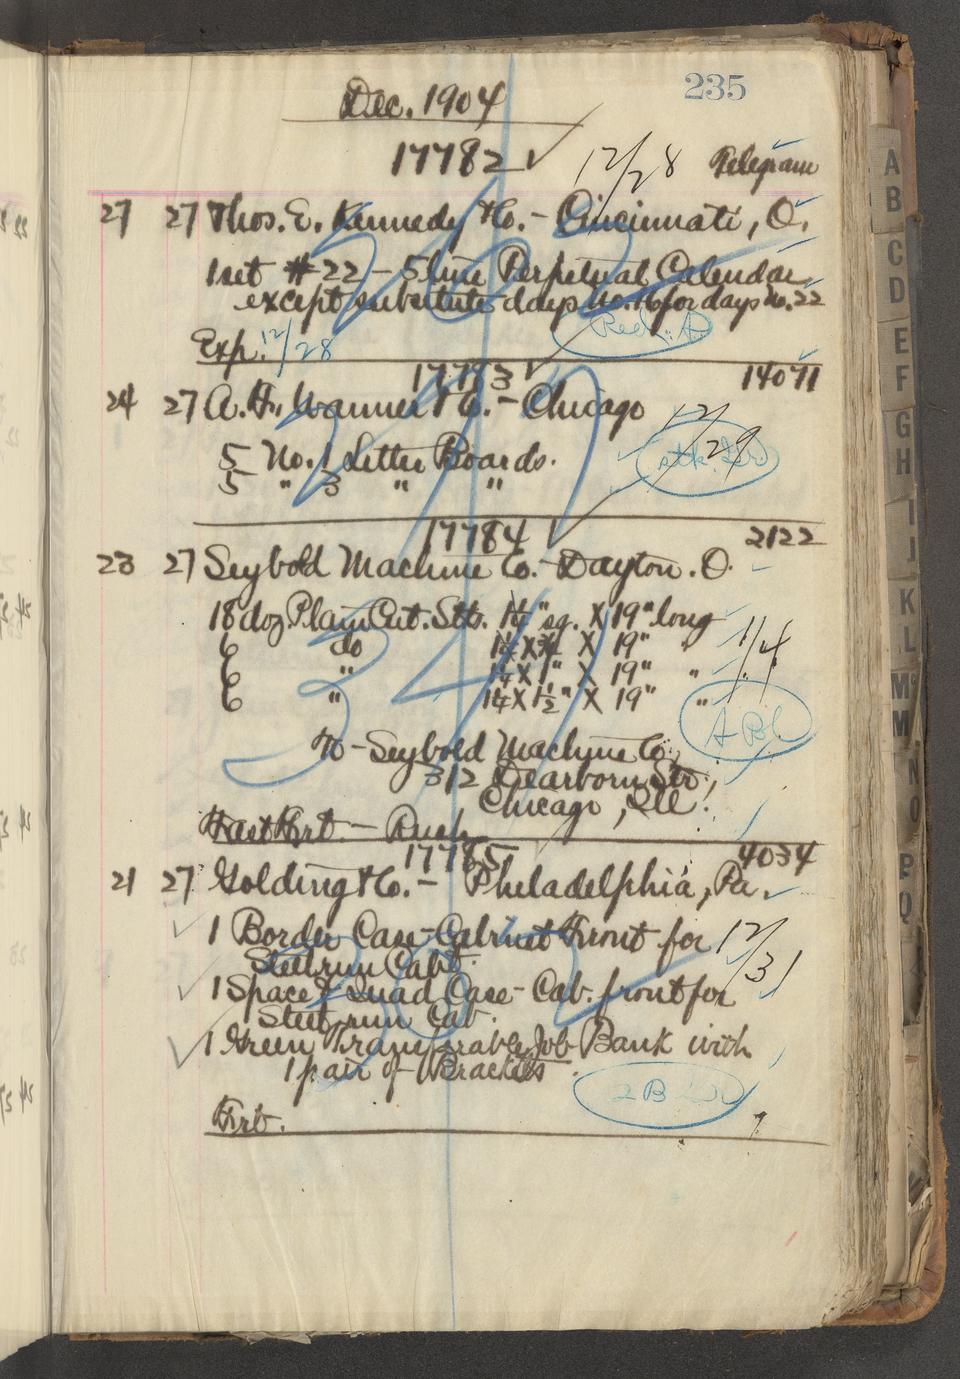 235
Dec. 1904
17782 12/28 Telegram
27 27 Thos. E. Kennedy & Co. - Cincinnati, O.
1 set #22 - 5 line Perpetual Calendar
except substitute days no. 16 for days no. 22
Exp. 12/28
17783 14071
24 27 A. H. Wanner & Co. - Chicago
12/29
5 No. 1 Letter Boards.
5 " 3 " "
17784 2122
23 27 Seybold Machine Co. - Dayton. O.
18 doz Plain Cut. Stks. 1¼" sq. X 19" long
6 do X 19" 1/4
6 " 1¼ X 1" X 19" "
6 " 1¼ X 1½" X 19" "
To - Seybold Machine Co.
312 Dearborn Str.,
Chicago, Ill.
Fast Frt. - Rush
17785 4034
21 27 Golding & Co. - Philadelphia, Pa.
1 Border Case - Cabinet Front for 12/31
Steel run Cabt.
1 Space & Quad Case - Cab. front for
Steel run Cab.
1 Green Job Bank with
1 pair of Brackets
Frt.
A
B
C
D
E
F
G
H
I
J
K
L
Mc
M
N
O
P
Q